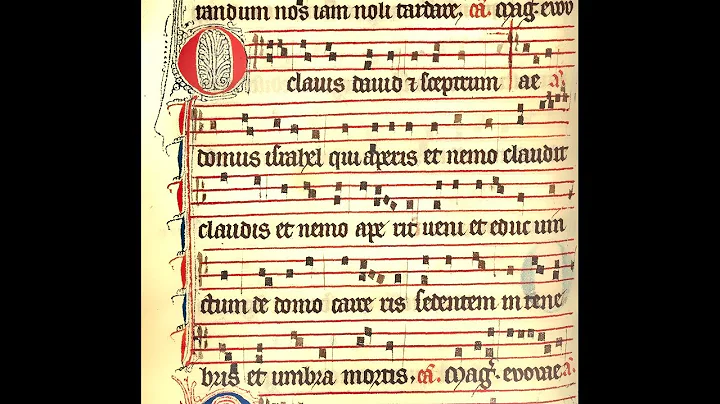 tandum nos iam noli tardare. ca. Mag. evov
O clavis david ⁊ sceptrum ae a.
domus israhel qui aperis et nemo claudit
claudis et nemo ape rit ueni et educ uin
ctum de domo carce ris sedentem in tene
bris et umbra mortis. ca. Mag. evovae. a.